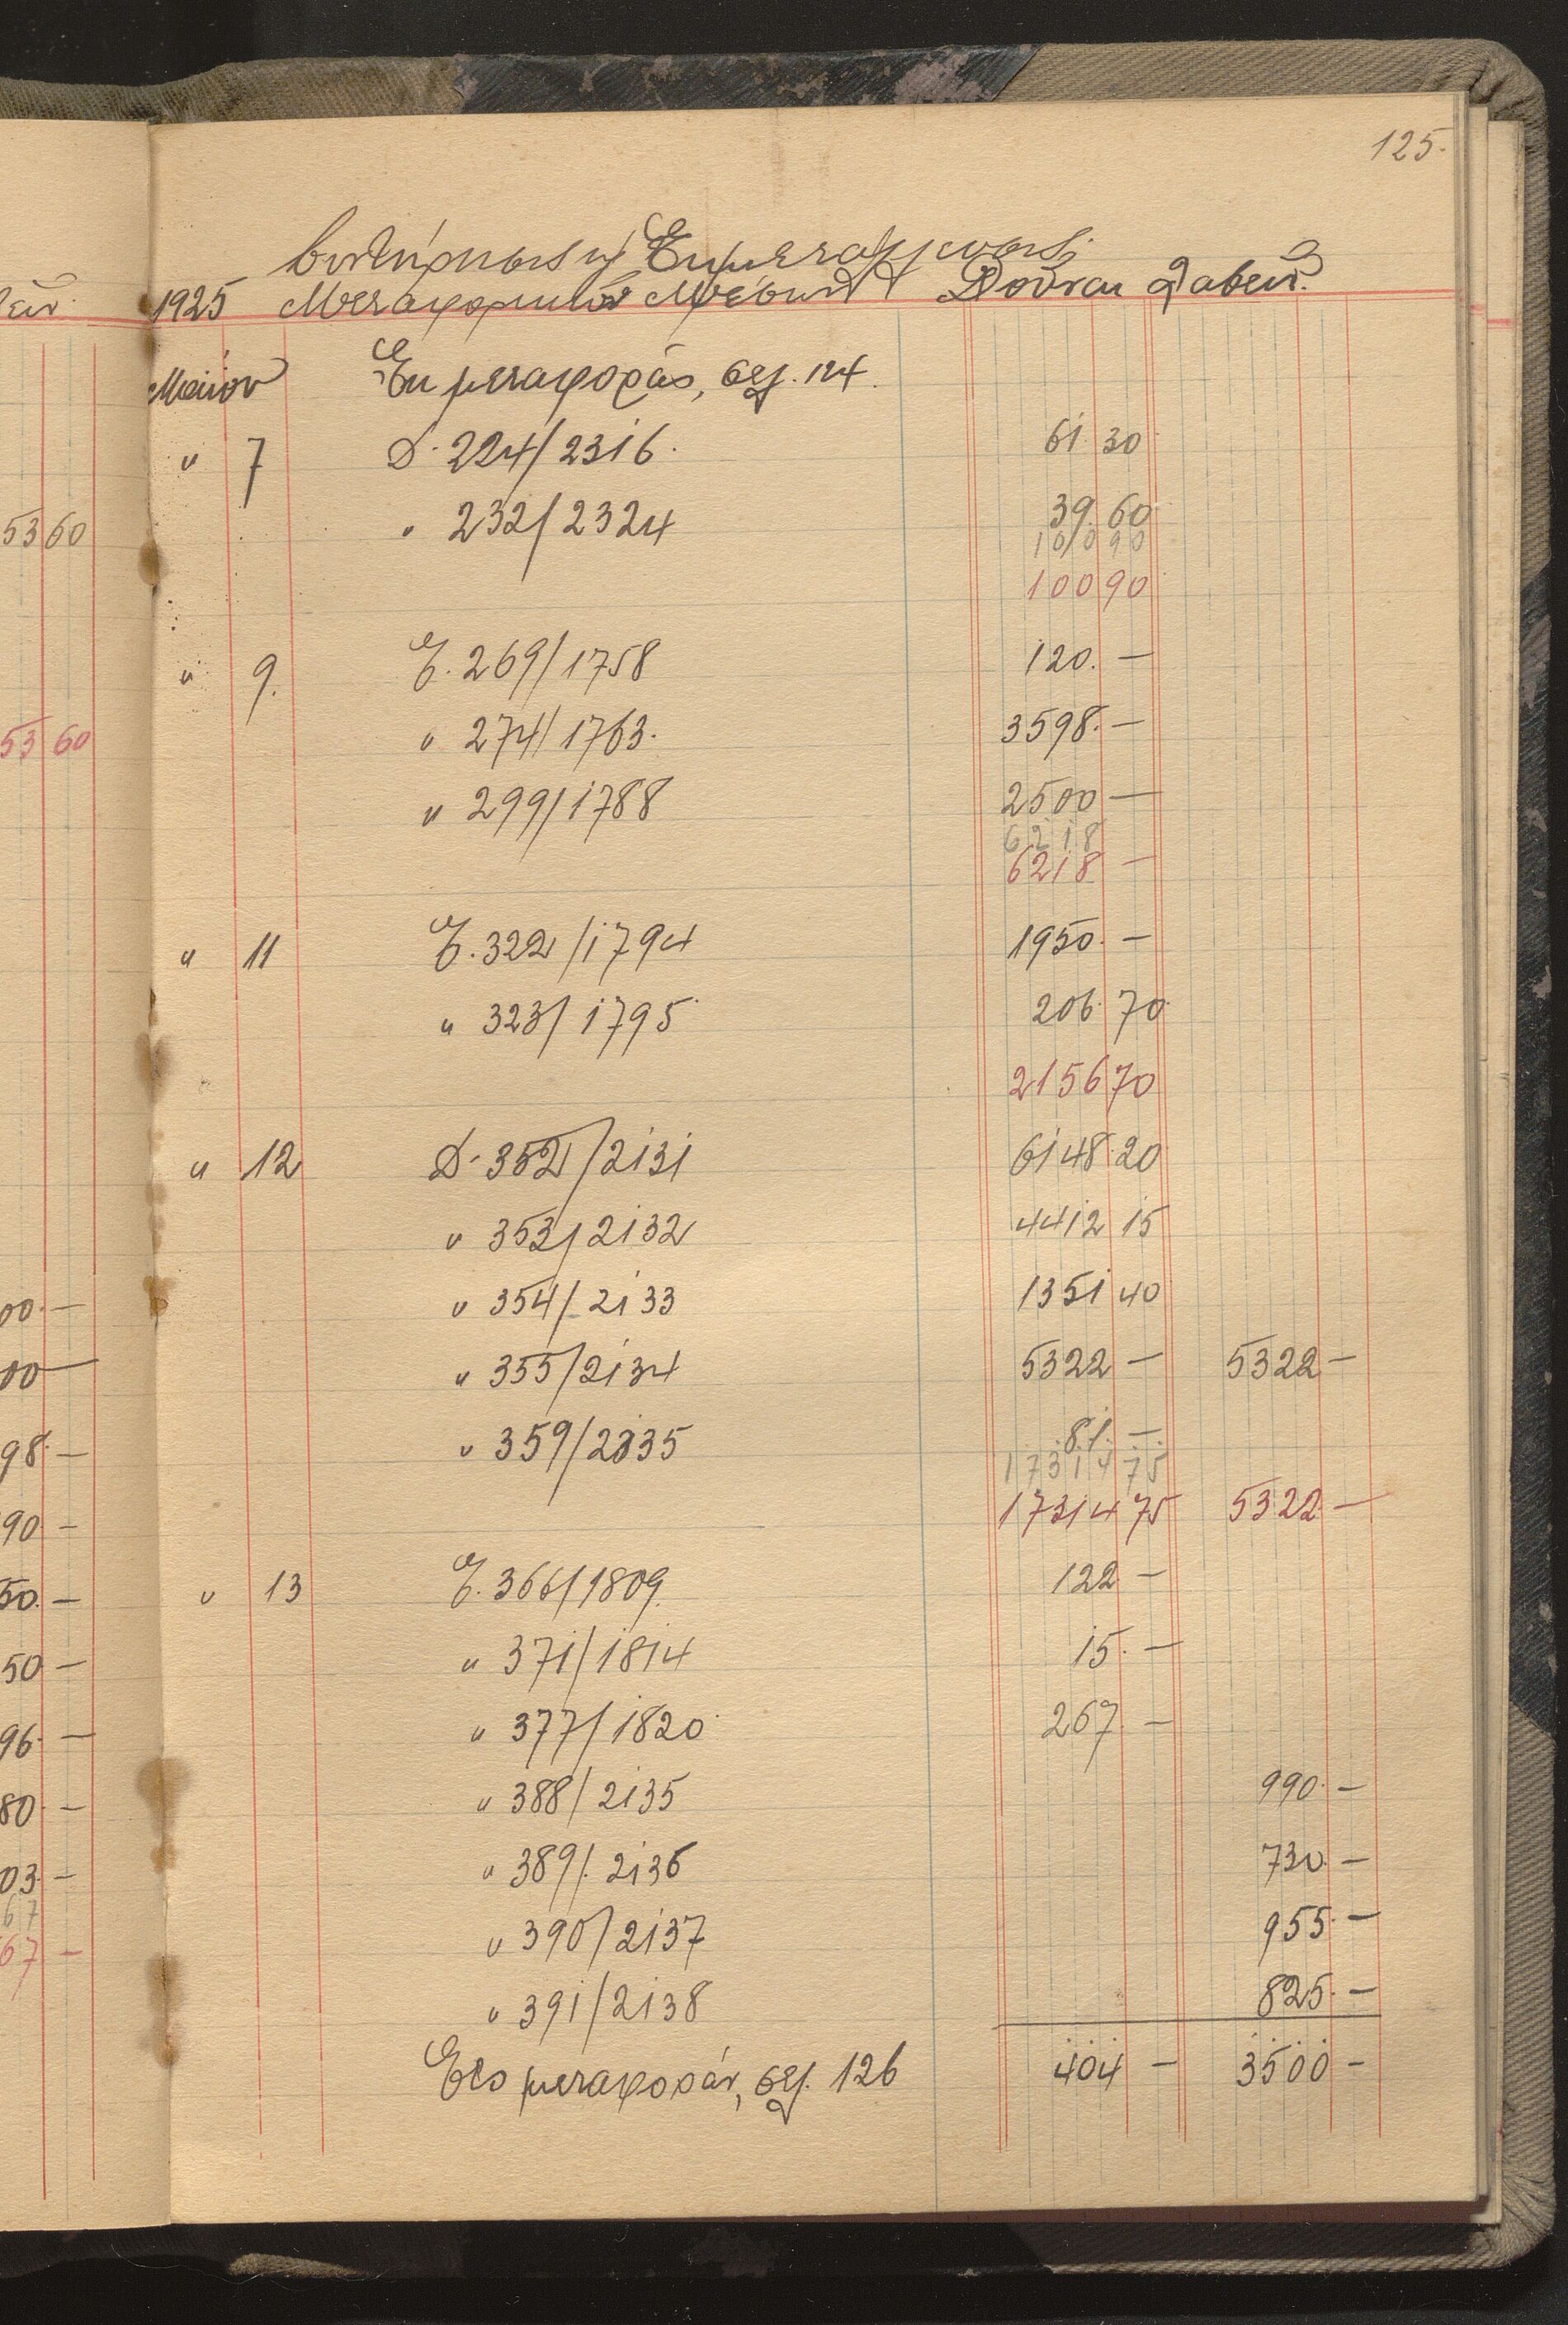 125.
Συντήρησις ἢ Ἐκμετάλλευσις
1925 Μεταφορικῶν Μέσων Δοῦναι Λαβεῖν.
Μαΐου Ἐκ μεταφορᾶς, σελ. 124.
〃 7 Δ. 224/2316. 61.30
〃 232/2324 39.60
100 90
100 90
〃 9. Ε. 269/1758 120. —
〃 274/1763. 3598. —
〃 299/1788 2500 —
6218
6218 —
〃 11 Ε. 322/1794 1950. —
〃 323/1795 206.70
2156 70
〃 12 Δ. 352/2131 6148.20
〃 353/2132 4412 15
〃 354/2133 1351 40
〃 355/2134 5322 — 5322 —
〃 359/2335 81. —
17314 75
17314 75 5322 —
〃 13 Ε. 366/1809. 122 —
〃 371/1814 15. —
〃 377/1820 267 —
〃 388/2135 990. —
〃 389/2136 730. —
〃 390/2137 955. —
〃 391/2138 825. —
Εἰς μεταφοράν, σελ. 126 404 — 3500 —
εῖν.
53 60
53 60
00. —
00 —
98. —
90 —
50. —
50 —
96. —
80. —
03. —
67
67 —